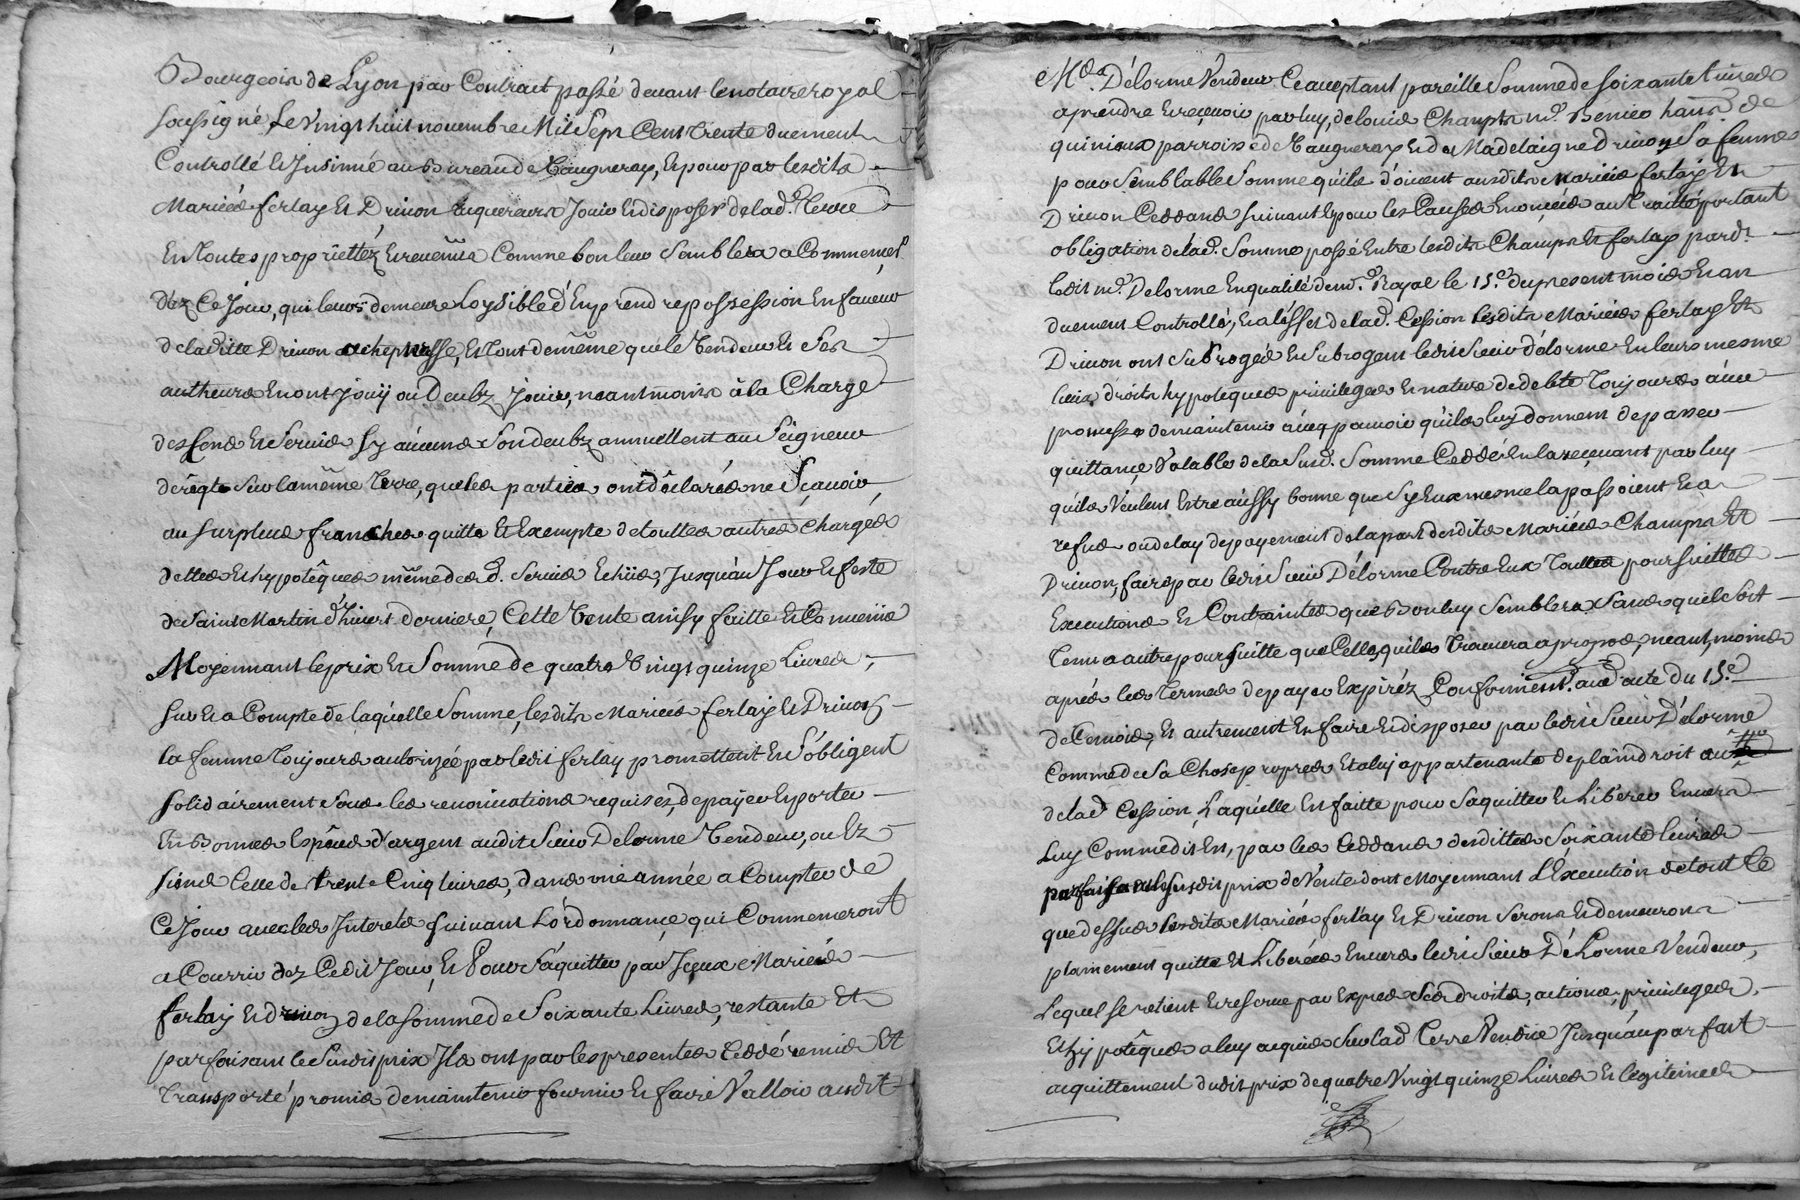 Bourgeois de Lyon par Contract passé devant le notaire royal
soussigné, Le Vingt huit novembre Mil Sept Cent Trente duement
Controllé et Insinué au Bureau de Vaugneray, et pour par lesdits
Mariés ferlay Et Drivon acquereurs Jouir et disposer de lad. Terre
En Toutes propriettéz Et revenus Comme bon leur Semblera a Commencer
déz Ce Jour, qui leurs demeure Loysible d'En prendre possession En faveur
de laditte Drivon achepteusse, Et Tout de même que le Vendeur Et Ses
autheurs En ont Joüy ou Deubz Jouir, neantmoins à la Charge
des Cens Et Servis sy aucuns Son deubz annuellent au Seigneur
de rigte Sur la même Terre, que les parties ont déclarés ne Sçavoir
au surplus franche quitte Et Exempte de touttes autres Charges
dettes Et hypotêques même des d. Servis Echüs, Jusqu'au Jour Et feste
de Saint Martin d'hivert derniere, Cette Vente ainsy faitte Et Convenüe
Moyennant le prix Et Somme de quatre Vingt quinze Livres,
Sur Et a Compte de laquelle Somme, lesdits Mariés ferlay Et Drivon
la femme Toujours autorizée par ledit ferlay promettent Et S'obligent
solidairement Sous les renonciations requises, de payer Et porter
En Bonnes Espêces d'argent audit Sieur Delorme Vendeur, ou Ez
siens Celle de Trente Cinq livres, dans une année a Compter de
Ce Jour avec les Interets suivant L'ordonnance qui Commenceront
a Courrir dez Cedit Jour, Et Pour S'aquitter par Iceux Mariés
ferlay Et drivon de la somme de Soixante Livres, restante Et
parfaisant le Susdit prix Ils ont par les presentes Ceddé remis Et
Transporté promis de maintenir fournir Et faire Valloir audit
Md. Délorme Vendeur Ce acceptant pareille Somme de soixante livres
a prendre Et reçevoir par luy, de louis Champin md. Benier hant. de
quinieux parroisse de Vaugneray Et de Madelaigne Drivon Sa femme
pour Semblable Somme qu'ils doivent ausdits Mariés ferlay Et
Drivon Ceddans suivant Et pour les Causes Enoncées au Traitté portant
obligation de lad. Somme passé Entre lesdits Champin Et ferlay pard.
ledit me. Delorme En qualité de no. Royal le 15e. du present mois Et an
duement Controllé, Et a l'effet de lad. Cession lesdits Mariés ferlay Et
Drivon ont Subrogés Et Subrogent ledit Sieur délorme En leurs mesme
lieux droits hypoteques privileges Et nature de debte Toujours avec
promesse de maintenir avec pouvoir qu'ils luy donnent de passer
quittance Valable de la Susd. Somme Ceddée En la reçevant par luy
qu'ils Veulent Estre aussy bonne que Sy Eux mesme la passoient Et a
refus ou delay de payement de la part desdits Mariés Champin Et
Drivon, faire par ledit Sieur Délorme Contre Eux Touttes poursuittes
Executions Et Contraintes que Bon luy Semblera Sans quil Soit
Tenu a autre poursuitte que Celles, quil Trouvera a propos, neantmoins
aprés les Termes de payer Expiréz Conformemt. aud. acte du 15e.
de Ce mois, Et autrement En faire Et disposer par ledit Sieur Délorme
Comme de Sa Chose propre Et a luy appartenante de plain droit au
de lad. Cession, Laquelle Est faitte pour S'aquitter Et Libérer Envers
Luy Comme dit Est, par les Ceddans desdittes Soixante livres
parfaisant le Susdit prix de Vente dont Moyennant L'Exécution de tout Ce
que dessus lesdits Mariés ferlay Et Drivon seront Et demeuront
plainement quitte Et Libérés Envers ledit Sieur Délorme Vendeur,
Lequel Se retient Et reserve par Exprés Ses droits, actions, privileges,
Et hypotêques a luy acquis Sur lad. Terre Vendüe Jusqu'au parfait
acquittement dudit prix de quatre Vingt quinze Livres Et legitimes